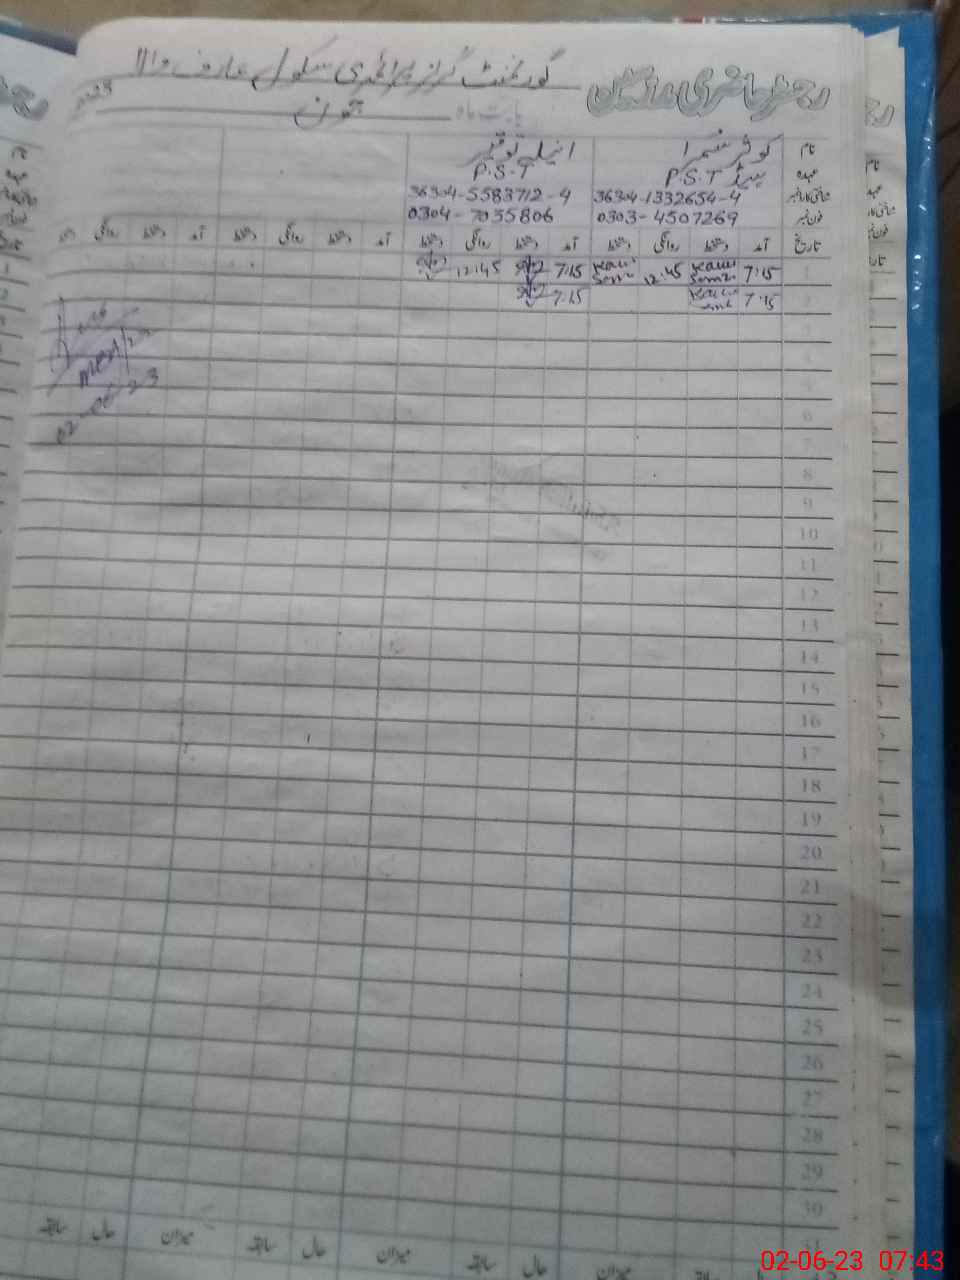 رجسٹر حاضری مدرسین
گورنمنٹ گرلز پرائمری سکول عارف والا
بابت ماہ جون 2023
نام کوثر سمرا انیلہ توقیر
عہدہ ہیڈ P.S.T P.S.T
شناختی کارڈ نمبر 36304-1332654-4 36304-5583712-9
فون نمبر 0303-4507269 0304-7035806
تاریخ آمد دستخط روانگی دستخط آمد دستخط روانگی دستخط آمد دستخط روانگی دستخط آمد دستخط روانگی دستخط
1 7:15 12:45 7:15 12:45
2 7:15 7:15
3
4
6
7
8
9
10
11
12
13
14
15
16
17
18
19
20
21
22
23
24
25
26
27
28
29
30
31
02-06-23
میزان حال سابقہ میزان حال سابقہ میزان حال سابقہ
02-06-23 07:43